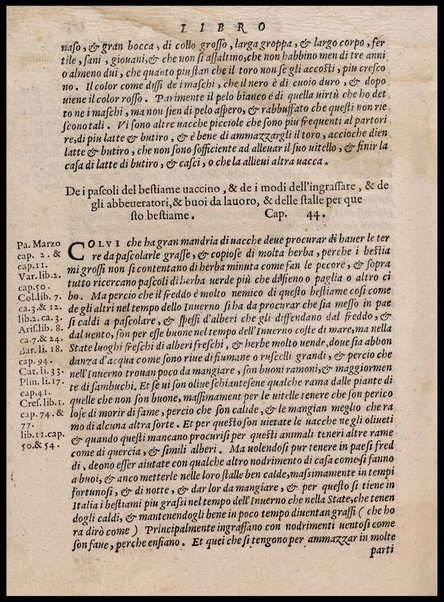 LIBRO
naso, & gran bocca, di collo grosso, larga groppa, & largo corpo, fer
tile, sani, giouani, & che non si assaltino, che non habbino men di tre anni
o almeno dui, che quanto piu stan che il toro non se gli accosti, piu cresco
no. Il color come dissi de i maschi, che il nero è di cuoio duro, & dopo
uiene il color rosso. Parimente il pelo bianco è di quella uirtù che ho det
to ne i maschi, ma non sien di pelo aspero, & rabbuffato che questi non rie
scono tali. Vi sono altre uacche picciole che sono piu frequenti al partori
re, di piu latte & butiro, & è bene di ammazzargli il toro, accioche dien
latte & butiro, che non sono sofficiente ad alleuar il suo uitello, & finir la
casa di latte di butiro, & casci, o che la alleui altra uacca.
De i pascoli del bestiame uaccino, & de i modi dell'ingrassare, & de
gli abbeueratori, & buoi da lauoro, & delle stalle per que
sto bestiame. Cap. 44.
Pa. Marzo
cap. 2. &
cap. 11.
Var. lib. 2.
cap. 50.
Col. lib. 7.
ca. 3. & 12.
lib. 2. ca. 3.
Aris. lib. 8.
ca. 7. & 24.
Bar. li. 18.
cap. 94.
Cat. li. 33.
Plin. li. 17.
cap. 41.
Cresc. lib. 1.
cap. 74. &
77.
lib. 11. cap.
50. & 54.
COLVI che ha gran mandria di uacche deue procurar di hauer le ter
re da pascolarle grasse, & copiose di molta herba, perche i bestia
mi grossi non si contentano di herba minuta come fan le pecore, & sopra
tutto ricercano pascoli di herba uerde più che disieno o paglia o altro ci
bo. Ma percio che il freddo è molto nemico di questo bestiame cosi come
de gli altri nel tempo dello Inuerno si ha da procurar che sia messo in pae
si caldi a pascolare, & spessi d'alberi che gli diffendano dal freddo, &
dal uento, son per esse buone nel tempo dell'Inuerno coste di mare, ma nella
State luoghi freschi di alberi freschi, & herbe molto uende, doue sia abbon
danza d'acqua come sono riue di fiumane o ruscelli grandi, & percio che
nell'Inuerno trouan poco da mangiare, son buoni ramoni, & maggiormen
te di sambuchi. Et se ui son oliue schiantesène qualche rama dalle piante di
quelle che non son buone, massimamente per le uitelle tenere che son perico
lose di morir di fame, percio che son calide, & le mangian meglio che ra
mo di alcuna altra sorte. Et per questo son uietate le uacche ne gli oliueti
& quando questi mancano procurisi per questi animali teneri altre rame
come di quercia, & simili alberi. Ma uolendosi pur tenere in paesi fred
di, deono esser aiutate con qualche altro nodrimento di casa come si fanno
a buoi, & anco metterle nelle loro stalle ben calde, massimamente in tempi
fortunosi, & di notte, & dar lor da mangiare, & per questo si tiene in
Italia i bestiami piu grassi nel tempo dell'Inuerno che nella State, che tenen
dogli caldi, & mantenendogli bene in poco tempo diuentan grassi (che ho
ra dirò come) Principalmente ingrassano con nodrimenti uentosi come
son faue, perche enfiano. Et quei che si tengono per ammazzar in molte
parti